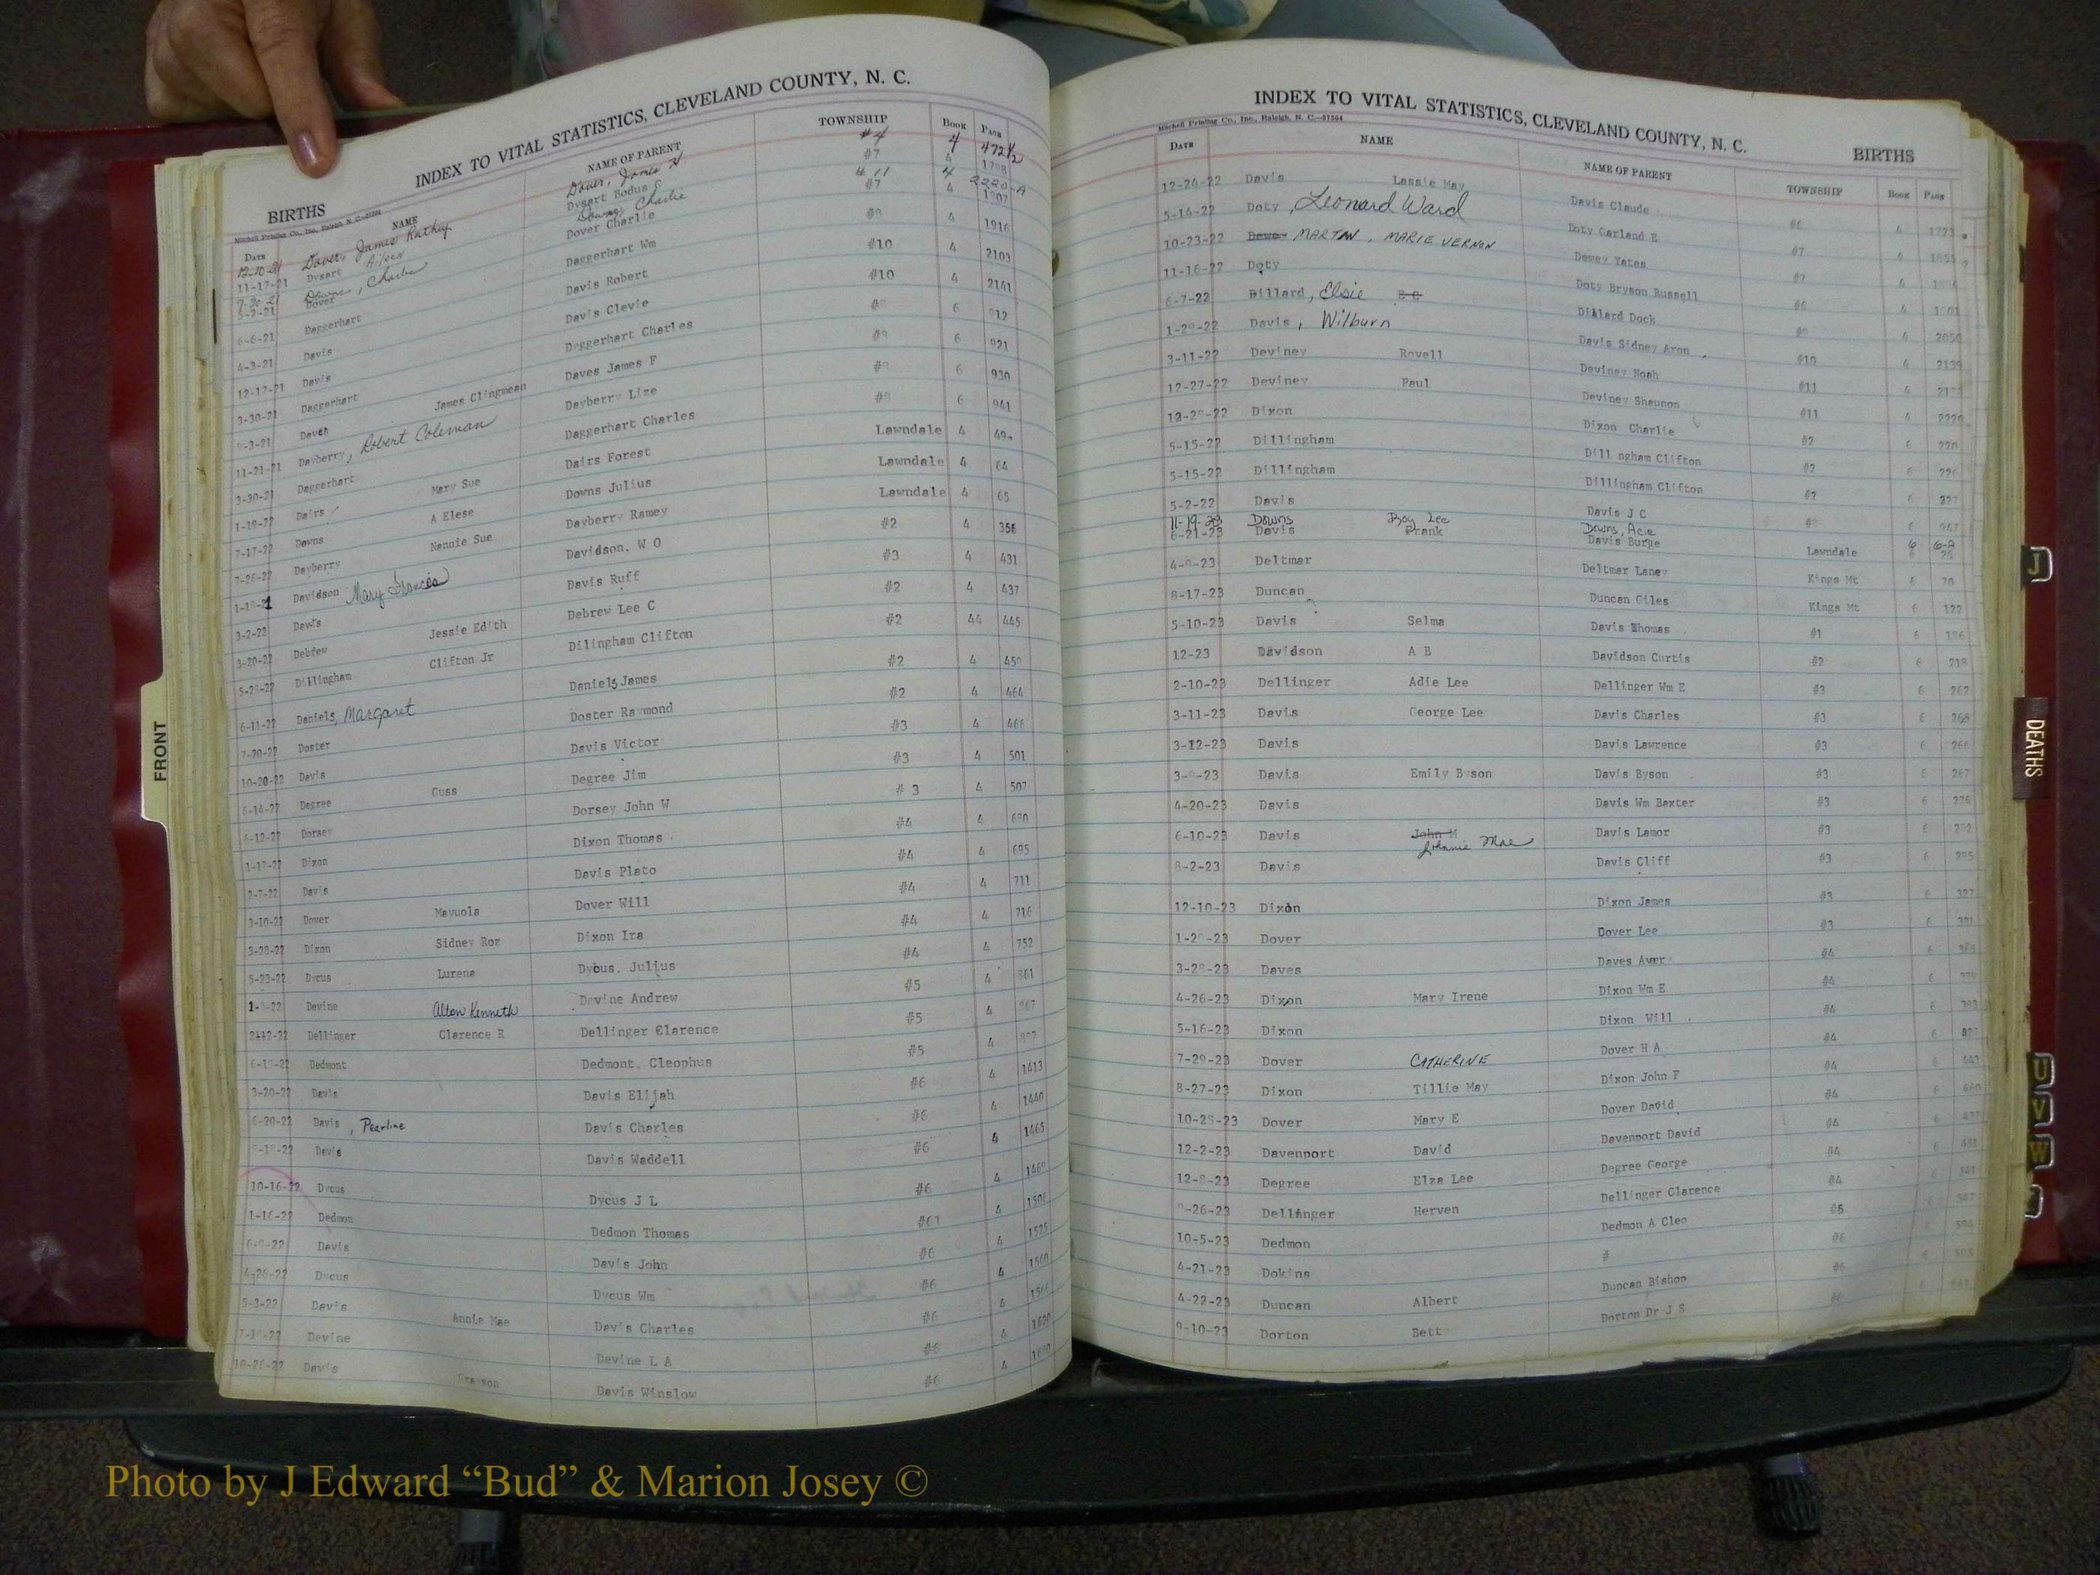 INDEX TO VITAL STATISTICS, CLEVELAND COUNTY, N. C.
BIRTHS
Mitchell Printing Co., Inc., Raleigh, N. C.
DATE NAME NAME OF PARENT TOWNSHIP BOOK PAGE
12-10-21 Dover, James Rathy Dover, James H #4 4 472½
11-17-21 Dysart Aileen Dysart Bodus C #7 4 1798
7-30-21 Downs, Charlie Downs, Charlie #11 4 2220-A
5-2-21 Dover Dover Charlie #7 4 1807
6-6-21 Daggerhart Daggerhart Wm #8 4 1916
4-3-21 Davis Davis Robert #10 4 2103
12-17-21 Davis Davis Clevie #10 4 2141
3-30-21 Daggerhart Daggerhart Charles #8 6 912
9-3-21 Daves James Clingmean Daves James F #8 6 921
11-21-21 Dayberry, Robert Coleman Dayberry Lize #8 6 930
3-30-21 Daggerhart Daggerhart Charles #8 6 941
1-19-22 Dairs Mary Sue Dairs Forest Lawndale 4 49
7-17-22 Downs A Elese Downs Julius Lawndale 4 64
7-26-22 Dayberry Nannie Sue Dayberry Ramey Lawndale 4 65
Davidson Mary Frances Davidson, W O #2 4 356
3-2-22 Davis Davis Ruff #3 4 431
3-20-22 Debrew Jessie Edith Debrew Lee C #2 4 437
5-29-22 Dillingham Clifton Jr Dilingham Clifton #2 44 445
6-11-22 Daniels, Margaret Daniels James #2 4 450
7-20-22 Doster Doster Raymond #2 4 464
10-20-22 Davis Davis Victor #3 4 466
6-14-22 Degree Guss Degree Jim #3 4 501
6-12-22 Dorsey Dorsey John W # 3 4 507
1-17-22 Dixon Dixon Thomas #4 4 680
2-7-22 Davis Davis Plato #4 4 695
3-10-22 Dover Mayuola Dover Will #4 4 711
3-28-22 Dixon Sidney Roz Dixon Ira #4 4 716
5-23-22 Dycus Lurene Dycus, Julius #4 4 752
Devine Alton Kenneth Devine Andrew #5 4 861
Dellinger Clarence R Dellinger Clarence #5 4
Dedmont Dedmont, Cleophus #5 4
3-20-22 Davis Davis Elijah #6 4 1413
6-20-22 Davis, Pearline Davis Charles #6 4 1440
Davis Davis Waddell #6 4 1465
10-16-22 Dycus Dycus J L #6 4
1-16-22 Dedmon Dedmon Thomas #61 4
Davis Davis John #6 4 1525
4-26-22 Dycus Dycus Wm #6 4 1560
5-3-22 Davis Annie Mae Davis Charles #6 4
Devine Devine L A #6 4
10-26-22 Davis Davis Winslow #6 4
FRONT
INDEX TO VITAL STATISTICS, CLEVELAND COUNTY, N. C.
BIRTHS
Mitchell Printing Co., Inc., Raleigh, N. C.
DATE NAME NAME OF PARENT TOWNSHIP BOOK PAGE
12-24-22 Davis Lassie May Davis Claude #6 4 1723
5-14-22 Doty, Leonard Ward Doty Garland E #7 4
10-23-22 Dewey MARTIN, MARIE VERNON Dewey Yates #7 4
11-16-22 Doty Doty Bryson Russell #6 4
6-7-22 Dillard, Elsie Dillard Dock 4 2050
1-29-22 Davis, Wilburn Davis Sidney Aron #10 4 2139
3-11-22 Deviney Rovell Deviney Noah #11 4
12-27-22 Deviney Paul Deviney Shaunon #11 4 2220
12-29-22 Dixon Dixon Charlie #2 6 220
5-15-22 Dillingham Dillingham Clifton #2 6 226
5-15-22 Dillingham Dillingham Clifton #2 6 227
5-2-22 Davis Davis J C 6 947
11-19-23 Downs Roy Lee Downs, Acie 6 6-A
6-21-23 Davis Prank Davis Burge Lawndale 6 25
Deltmar Deltmar Laney Kings Mt 6 70
8-17-23 Duncan Duncan Giles Kings Mt 6 122
5-10-23 Davis Selma Davis Thomas #1 6
12-23 Davidson A B Davidson Curtis #2 6 218
2-10-23 Dellinger Adie Lee Dellinger Wm E #3 6 262
3-11-23 Davis George Lee Davis Charles #3 6
3-12-23 Davis Davis Lawrence #3 6 266
Davis Emily Byson Davis Byson #3 6 267
4-20-23 Davis Davis Wm Baxter #3 6 276
6-10-23 Davis John M Johnnie Mae Davis Lamor #3 6
8-2-23 Davis Davis Cliff #3 6 295
12-10-23 Dixon Dixon James #3 6
Dover Dover Lee #3 6
3-28-23 Daves Daves Avery #4 6
4-26-23 Dixon Mary Irene Dixon Wm E #4 6
5-16-23 Dixon Dixon Will #4 6 393
7-29-23 Dover CATHERINE Dover H A #4 6
8-27-23 Dixon Tillie May Dixon John F #4 6
10-28-23 Dover Mary E Dover David #4 6
12-2-23 Davenport David Davenport David #4 6
Degree Elza Lee Degree George #4 6
Dellinger Herven Dellinger Clarence #4
10-5-23 Dedmon Dedmon A Cleo #5
4-21-23 Dokins # #6
4-22-23 Duncan Albert Duncan Bishop #6
9-10-23 Dorton Bett Dorton Dr J S
J
DEATHS
U
V
W
Photo by J Edward “Bud” & Marion Josey ©